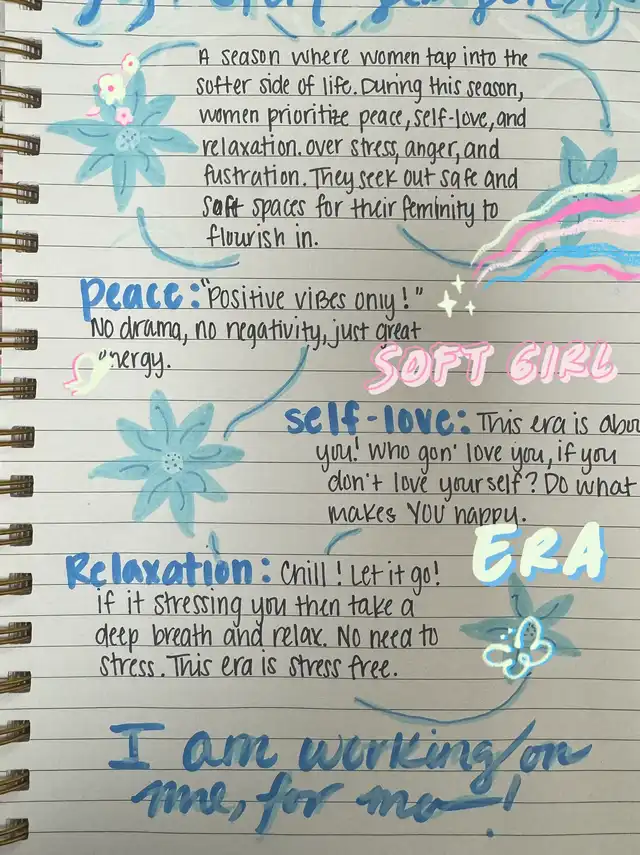 A season where women tap into the
softer side of life. During this season,
women prioritize peace, self-love, and
relaxation. over stress, anger, and
fustration. They seek out safe and
soft spaces for their feminity to
flourish in.
Peace: "Positive vibes only!"
No drama, no negativity, just great
energy.
SOFT GIRL
self-love: This era is abou
you! Who gon' love you, if you
don't love yourself? Do what
makes YOU happy.
ERA
Relaxation: Chill! Let it go!
if it stressing you then take a
deep breath and relax. No need to
stress. This era is stress free.
I am working on
me, for me!